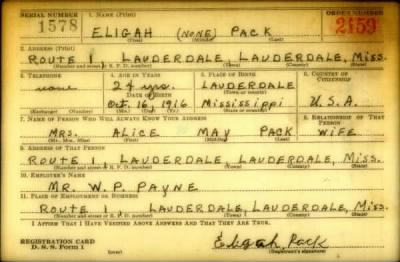 SERIAL NUMBER 1. NAME (Print) ORDER NUMBER
1578 ELIGAH (NONE) PACK 2159
(First) (Middle) (Last)
2. ADDRESS (Print)
ROUTE 1 LAUDERDALE, LAUDERDALE, MISS.
(Number and street or R. F. D. number) (Town) (County) (State)
3. TELEPHONE 4. AGE IN YEARS 5. PLACE OF BIRTH 6. COUNTRY OF CITIZENSHIP
none 24 yrs. LAUDERDALE
DATE OF BIRTH (Town or county)
Oct. 16, 1916 Mississippi U.S.A.
(Exchange) (Number) (Mo.) (Day) (Yr.) (State or country)
7. NAME OF PERSON WHO WILL ALWAYS KNOW YOUR ADDRESS 8. RELATIONSHIP OF THAT PERSON
MRS. ALICE MAY PACK WIFE
(Mr., Mrs., Miss) (First) (Middle) (Last)
9. ADDRESS OF THAT PERSON
ROUTE 1 LAUDERDALE, LAUDERDALE, MISS.
(Number and street or R. F. D. number) (Town) (County) (State)
10. EMPLOYER'S NAME
MR. W. P. PAYNE
11. PLACE OF EMPLOYMENT OR BUSINESS
ROUTE 1 LAUDERDALE, LAUDERDALE, MISS.
(Number and street or R. F. D. number) (Town) (County) (State)
I AFFIRM THAT I HAVE VERIFIED ABOVE ANSWERS AND THAT THEY ARE TRUE.
REGISTRATION CARD
D. S. S. Form 1 Eligah Pack
(Registrant's signature)